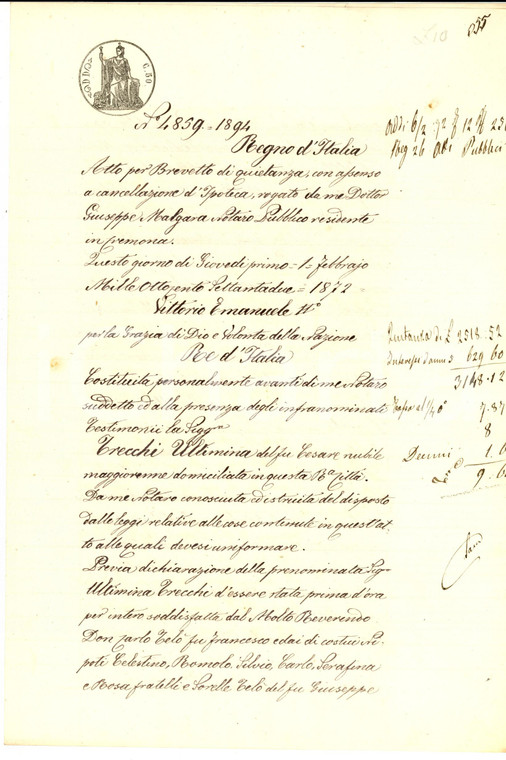 255
C. 50
N° 4859 = 1894
Regno d'Italia
Atto per Brevetto di quietanza, con assenso
a cancellazione d'Ipoteca, rogato da me Dottor
Giuseppe Malgara Notaro Pubblico residente
in Cremona.
Questo giorno di Giovedì primo = 1 = Febbrajo
Mille Ottocento Settantadue = 1872
Vittorio Emanuele II°
per la Grazia di Dio e Volontà della Nazione
Re d'Italia
Costituita personalmente avanti di me Notaro
suddetto ed alla presenza degli infranominati
Testimonii la Sigra
Trecchi Ultimina del fu Cesare nubile
maggiorenne domiciliata in questa Ra Città.
Da me Notaro conosciuta ed istruita del disposto
dalle leggi relative alle cose contenute in quest'at-
to alle quali devesi uniformare.
Previa dichiarazione della prenominata Sigra
Ultimina Trecchi d'essere stata prima d'ora
per intero soddisfatta dal Molto Reverendo
Don Carlo Telò fu Francesco e dai di costui Ni-
poti Celestino, Romolo, Silvio, Carlo, Serafina
e Rosa fratelli e Sorelle Telò del fu Giuseppe
Addì 6/2 72
Reg 26 Atti Pubblici
Quitanza di £ 2518.52
Interessi d'anni 3 629 60
3148.12
7.87
8
Decimi
9.6